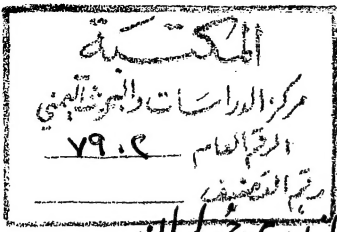 المكتبة
مركز الدراسات والبحوث اليمني
الرقم العام ٧٩٠٢
رقم التصنيف